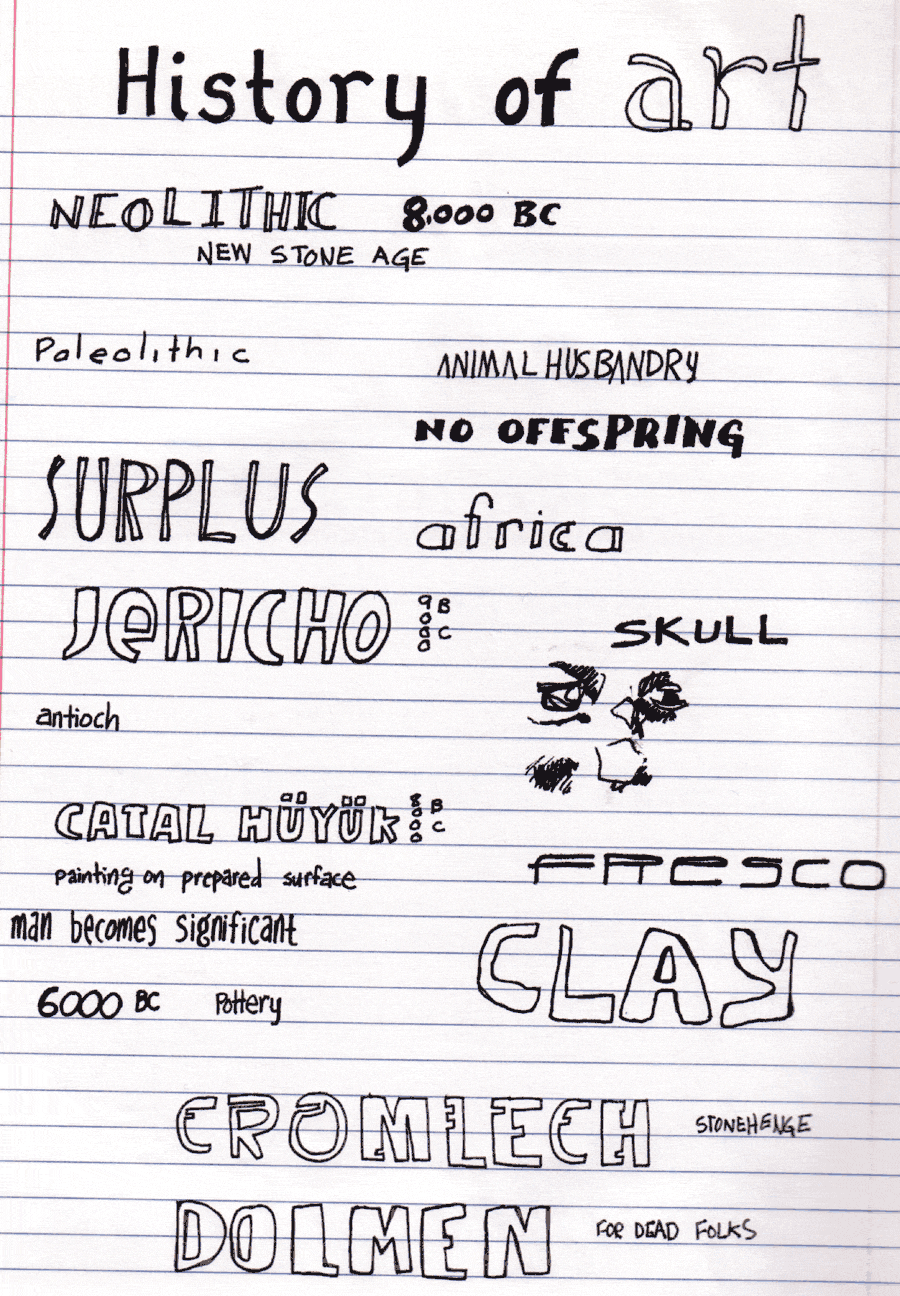 History of art
NEOLITHIC 8,000 BC
NEW STONE AGE
Paleolithic
ANIMAL HUSBANDRY
NO OFFSPRING
SURPLUS
africa
JeRICHO 9000 BC
SKULL
antioch
CATAL HÜYÜK 8000 BC
painting on prepared surface
FResco
man becomes significant
CLAY
6000 BC Pottery
CROMLECH STONEHENGE
DOLMEN FOR DEAD FOLKS